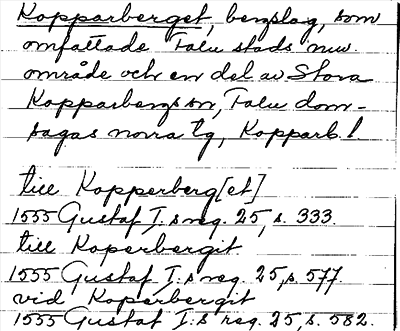 Kopparberget, bergslag, som
omfattade Falu stads nuv.
område och en del av Stora
Kopparbergs sn, Falu dom-
sagas norra tg, Kopparb. l
till Kopperberg[et]
1555 Gustaf I:s reg. 25, s. 333.
till Koperbergit
1555 Gustaf I:s reg. 25, s. 577.
vid Koperbergit
1555 Gustaf I:s reg. 25, s. 582.